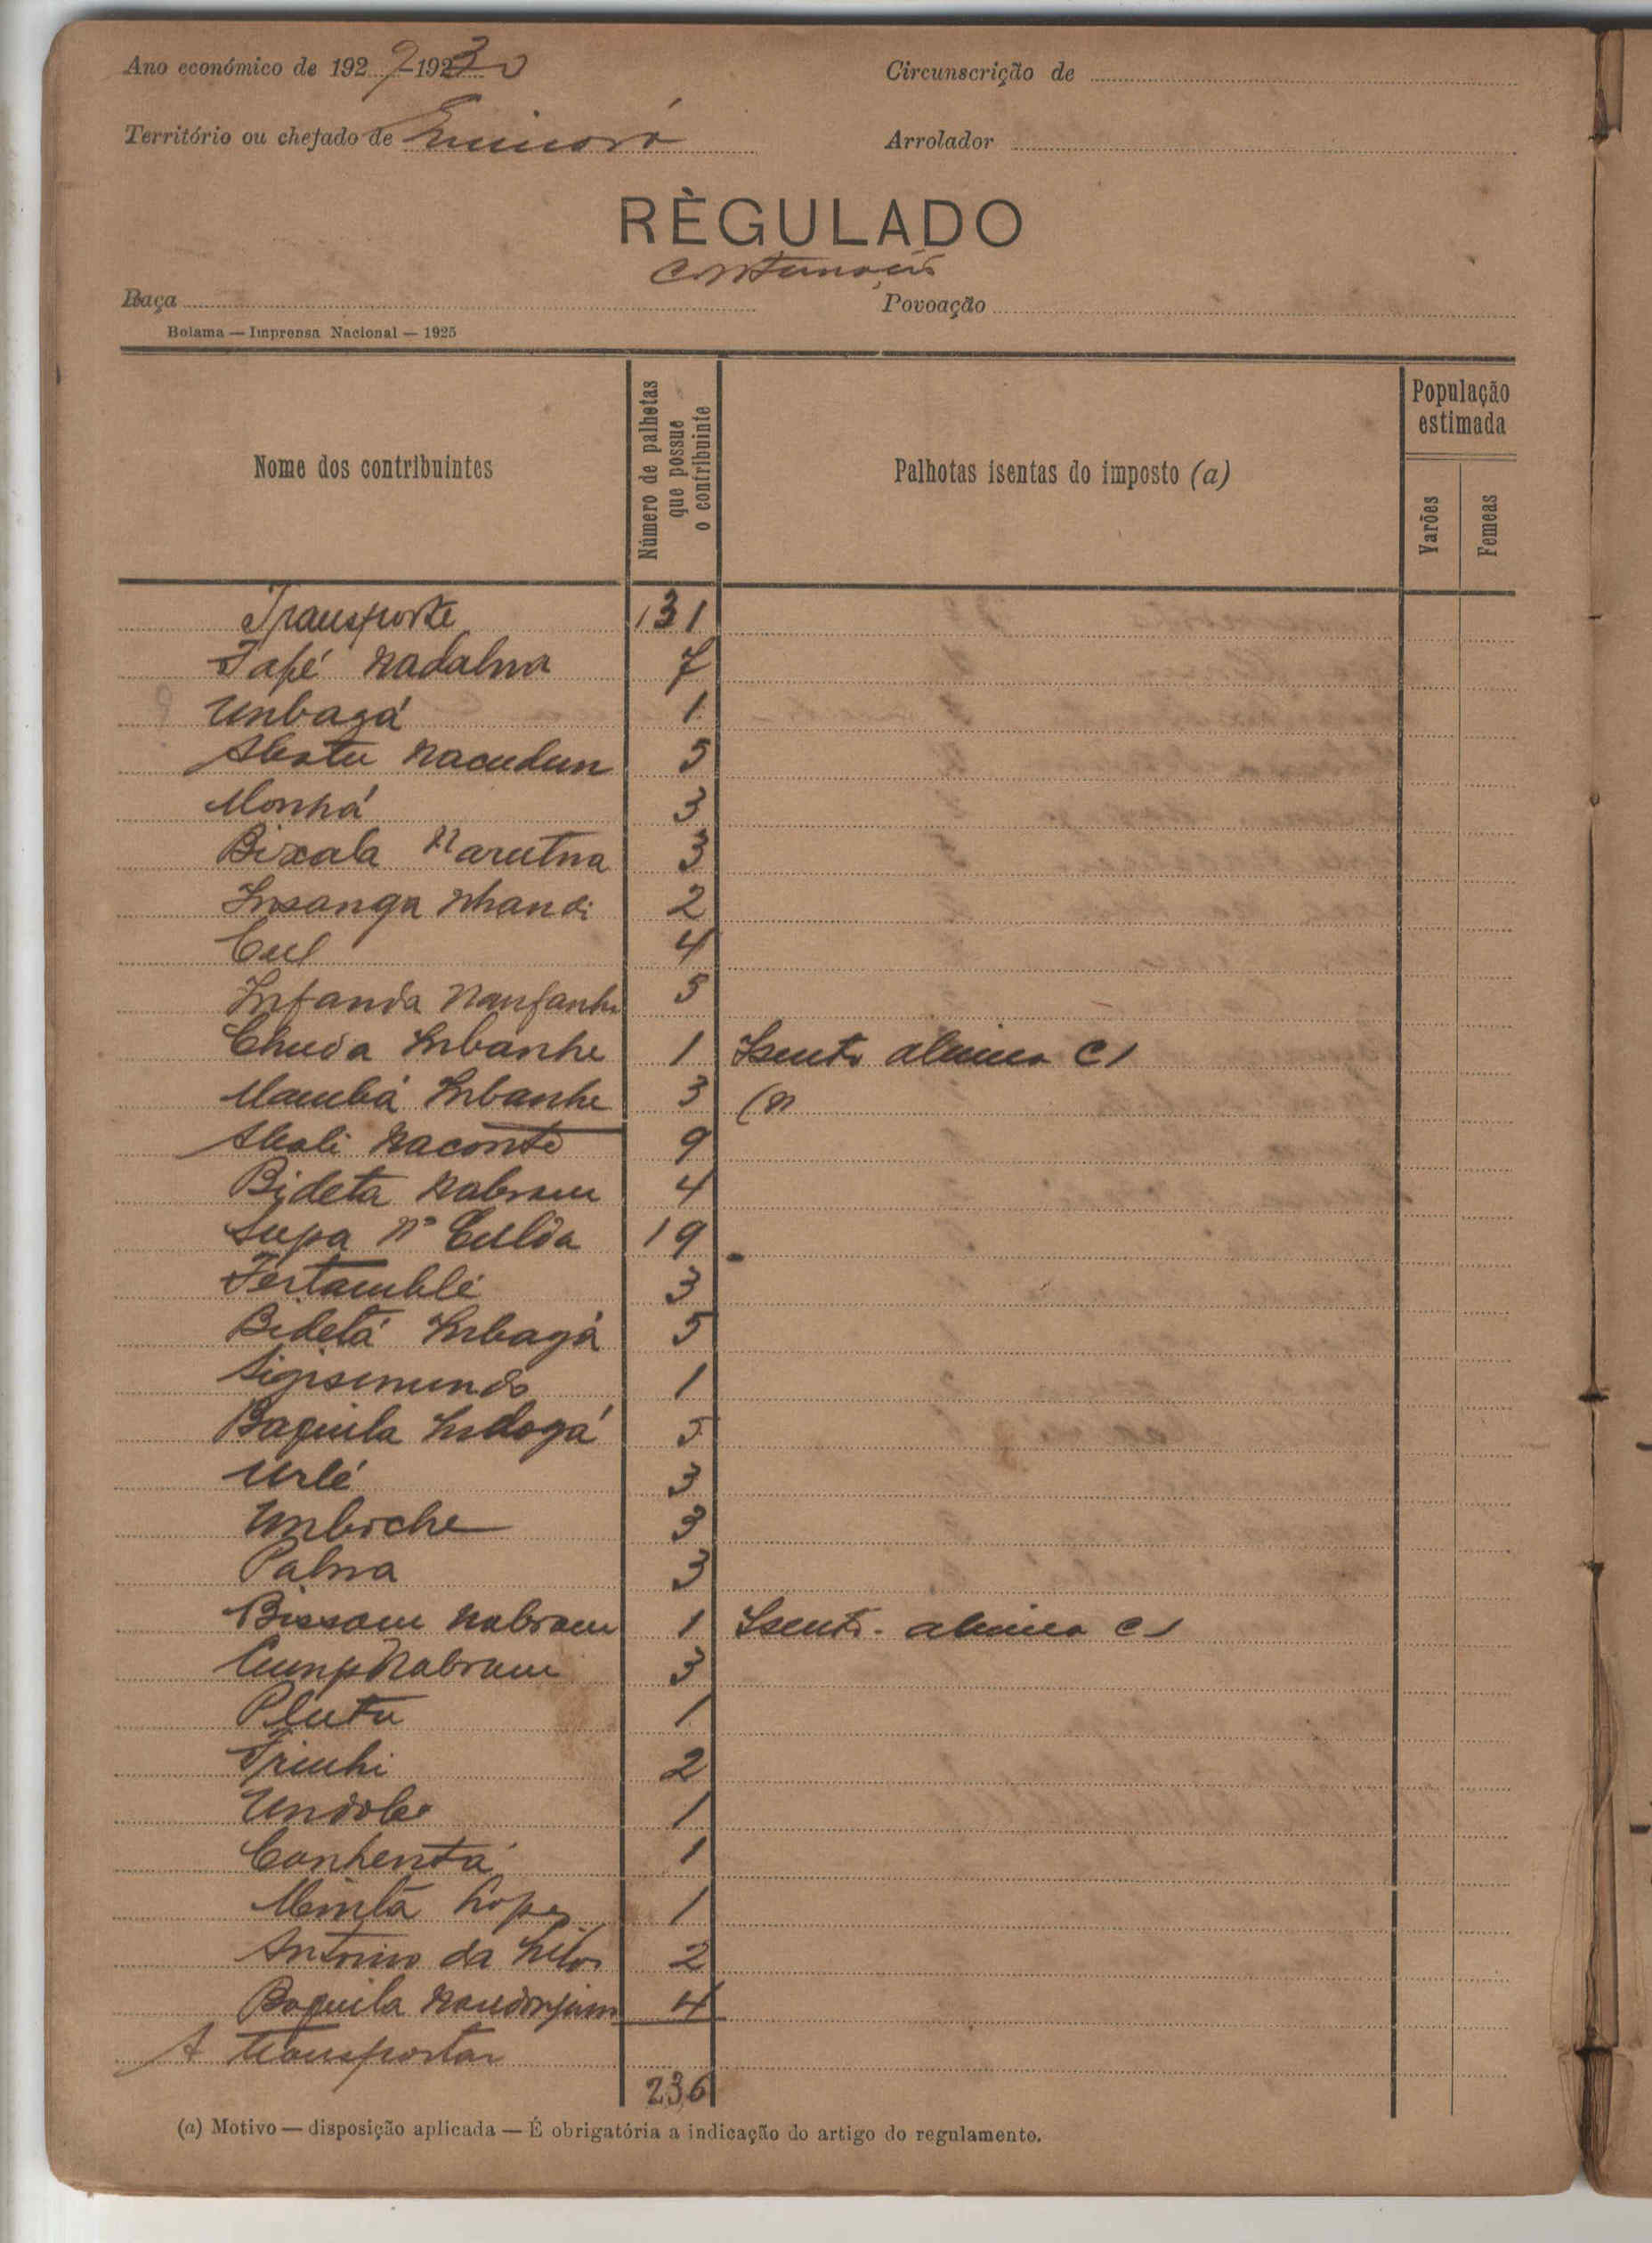 Ano económico de 1929-1930
Circunscrição de
Território ou chefado de
Arrolador
RÈGULADO
Raça
Povoação
Bolama — Imprensa Nacional — 1925
Nome dos contribuintes
Número de palhetas que possue o contribuinte
Palhotas isentas do imposto (a)
População estimada
Varões
Femeas
Transporte 131
Tapé Nadalma 7
Unbagá 1
Nacudun 5
Monhá 3
Bixala Narutna 3
Insanga Nhandi 2
Cul 4
Infanda Nanfanhe 5
Chuda Inbanhe 1 Isento C1
Mambá Inbanhe 3
Naconté 9
Bideta Nabram 4
Supa Nº Culda 19
Fertamblé 3
Bidetá Inbagá 5
Sigismundo 1
Baquila Indogá 5
Urlé 3
Unbiche 3
Palna 3
Bissam Nabram 1 Isento C1
Nabram 3
Plutu 1
Triuhi 2
Undole 1
Canhentá 1
Lopes 1
Antonio da 2
Baquila 4
A transportar
236
(a) Motivo — disposição aplicada — É obrigatória a indicação do artigo do regulamento.